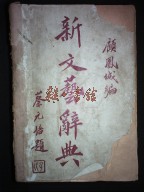 顧鳳城編
新文藝辭典
蔡元培題